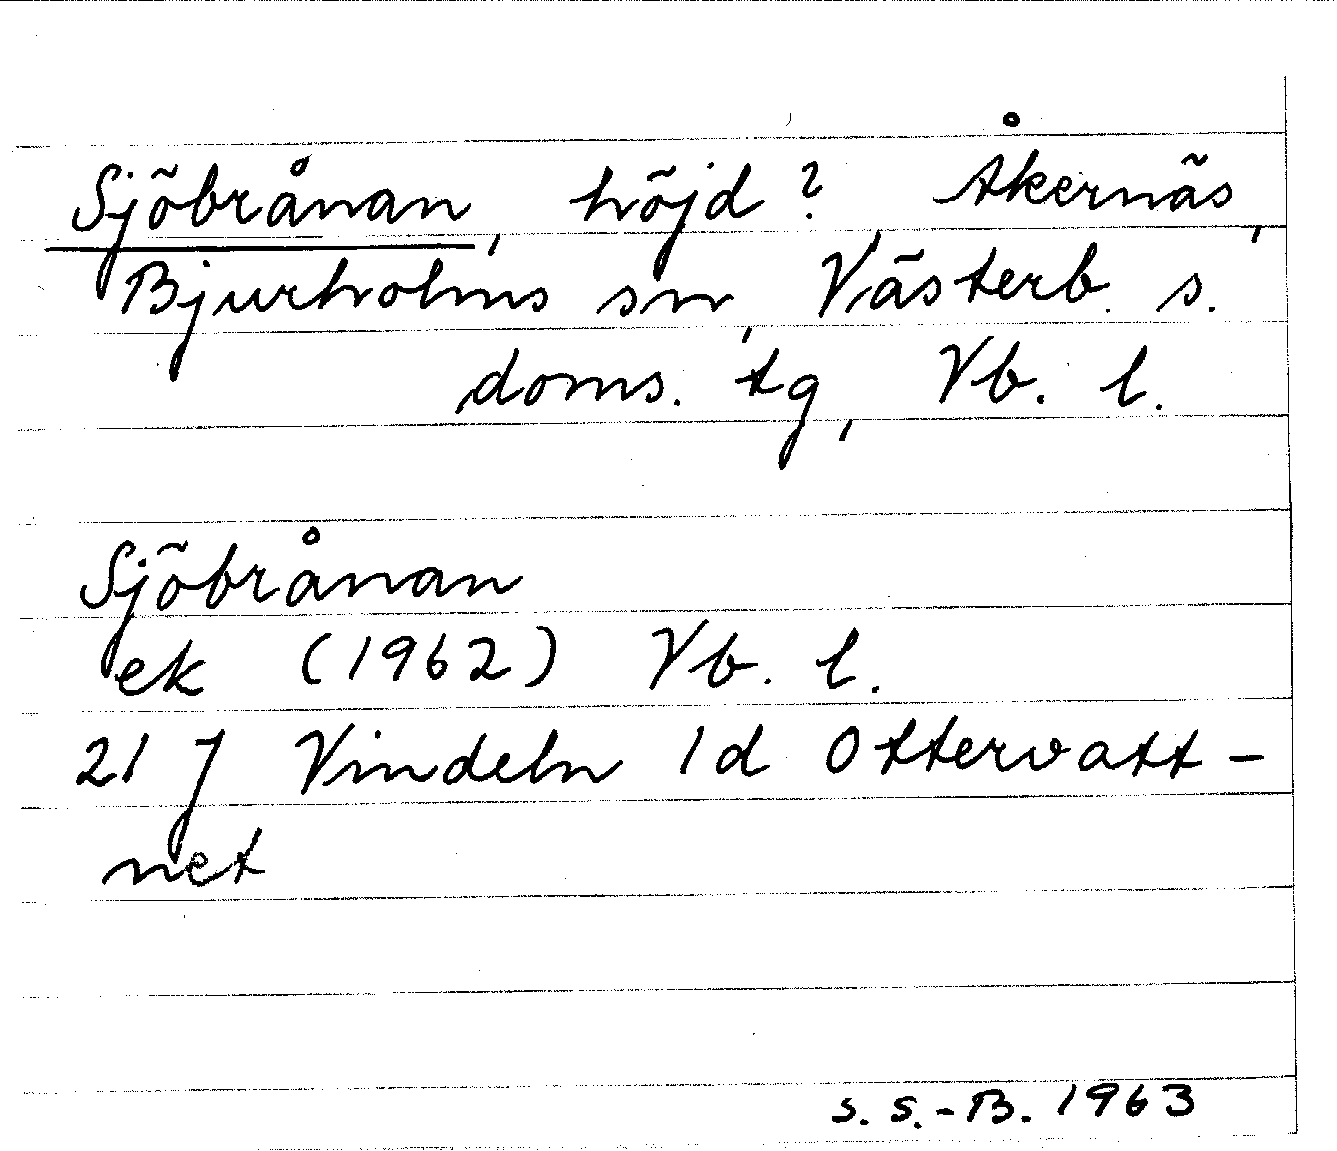 Sjöbrånan, höjd? Åkernäs,
Bjurholms sn, Västerb. s.
doms. tg, Vb. l.
Sjöbrånan
ek (1962) Vb. l.
21 J Vindeln 1d Ottervatt-
net
S. S.-B. 1963